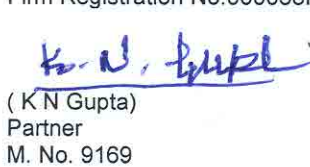 Firm Registration No.
K. N. Gupta
( K N Gupta)
Partner
M. No. 9169